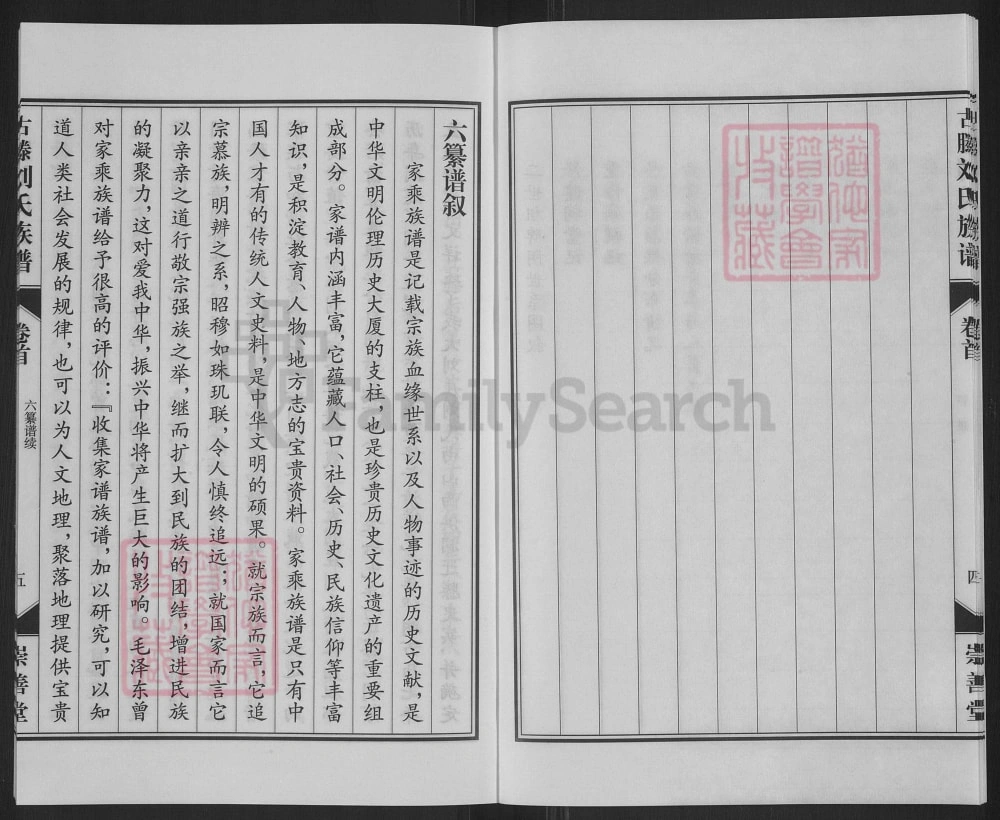 古滕刘氏族谱
卷首
四
崇善堂
六纂谱叙
家乘族谱是记载宗族血缘世系以及人物事迹的历史文献，是
中华文明伦理历史大厦的支柱，也是珍贵历史文化遗产的重要组
成部分。家谱内涵丰富，它蕴藏人口、社会、历史、民族信仰等丰富
知识，是积淀教育、人物、地方志的宝贵资料。家乘族谱是只有中
国人才有的传统人文史料，是中华文明的硕果。就宗族而言，它追
宗慕族，明辨之系，昭穆如珠玑联，令人慎终追远；就国家而言它
以亲亲之道行敬宗强族之举，继而扩大到民族的团结，增进民族
的凝聚力，这对爱我中华，振兴中华将产生巨大的影响。毛泽东曾
对家乘族谱给予很高的评价：『收集家谱族谱，加以研究，可以知
道人类社会发展的规律，也可以为人文地理，聚落地理提供宝贵
古滕刘氏族谱
卷首
六纂谱续
五
崇善堂
FamilySearch